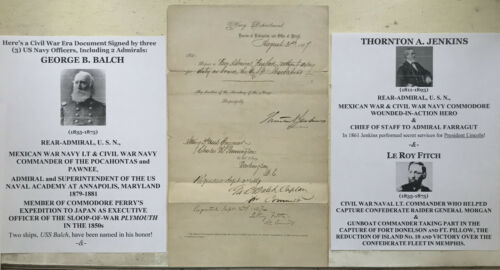 Here's a Civil War Era Document Signed by three
(3) US Navy Officers, Including 2 Admirals:
GEORGE B. BALCH
(1821-1875)
REAR-ADMIRAL, U. S. N.,
MEXICAN WAR NAVY LT & CIVIL WAR NAVY
COMMANDER OF THE POCAHONTAS and
PAWNEE,
ADMIRAL and SUPERINTENDENT OF THE US
NAVAL ACADEMY AT ANNAPOLIS, MARYLAND
1879-1881
MEMBER OF COMMODORE PERRY'S
EXPEDITION TO JAPAN AS EXECUTIVE
OFFICER OF THE SLOOP-OF-WAR PLYMOUTH
IN THE 1850s
Two ships, USS Balch, have been named in his honor!
-&-
Navy Department
Bureau of Navigation and Office of Detail
August
Sir
Rear Admiral
By direction of the Secretary of the Navy
Respectfully
Thornton A. Jenkins
Charles W.
Washington
D.C.
THORNTON A. JENKINS
(1811-1893)
REAR-ADMIRAL, U. S. N.,
MEXICAN WAR & CIVIL WAR NAVY COMMODORE
WOUNDED-IN-ACTION HERO
&
CHIEF OF STAFF TO ADMIRAL FARRAGUT
In 1861 Jenkins performed secret services for President Lincoln!
-&-
LE ROY FITCH
(1835-1875)
CIVIL WAR NAVAL LT. COMMANDER WHO HELPED
CAPTURE CONFEDERATE RAIDER GENERAL MORGAN
&
GUNBOAT COMMANDER TAKING PART IN THE
CAPTURE OF FORT DONELSON and FT. PILLOW, THE
REDUCTION OF ISLAND No. 10 AND VICTORY OVER THE
CONFEDERATE FLEET IN MEMPHIS.